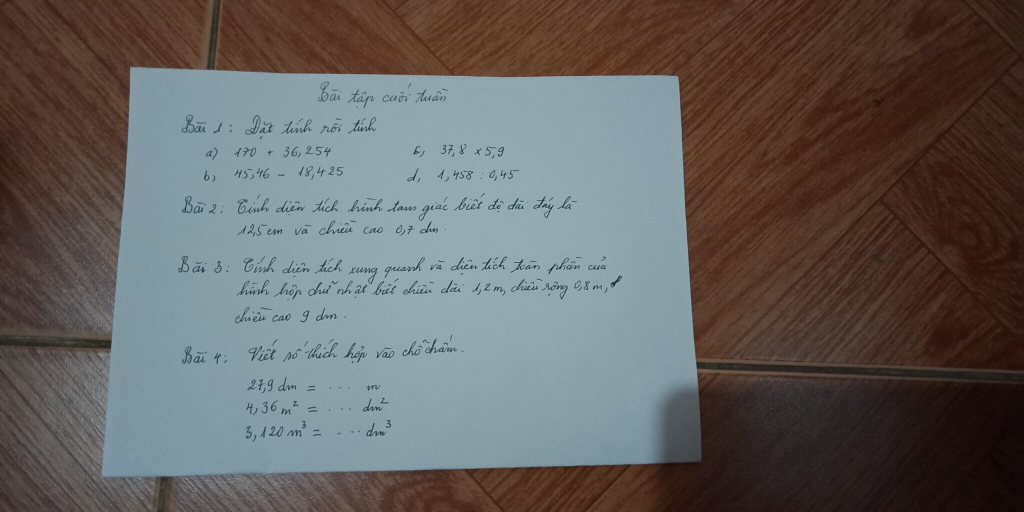 Bài tập cuối tuần
Bài 1: Đặt tính rồi tính
a) 170 + 36,254 c, 37,8 x 5,9
b, 45,46 - 18,425 d, 1,458 : 0,45
Bài 2: Tính diện tích hình tam giác biết độ dài đáy là
12,5 cm và chiều cao 0,7 dm.
Bài 3: Tính diện tích xung quanh và diện tích toàn phần của
hình hộp chữ nhật biết chiều dài 1,2 m, chiều rộng 0,8 m,
chiều cao 9 dm.
Bài 4: Viết số thích hợp vào chỗ chấm.
27,9 dm = ... m
4,36 m² = ... dm²
3,120 m³ = ... dm³